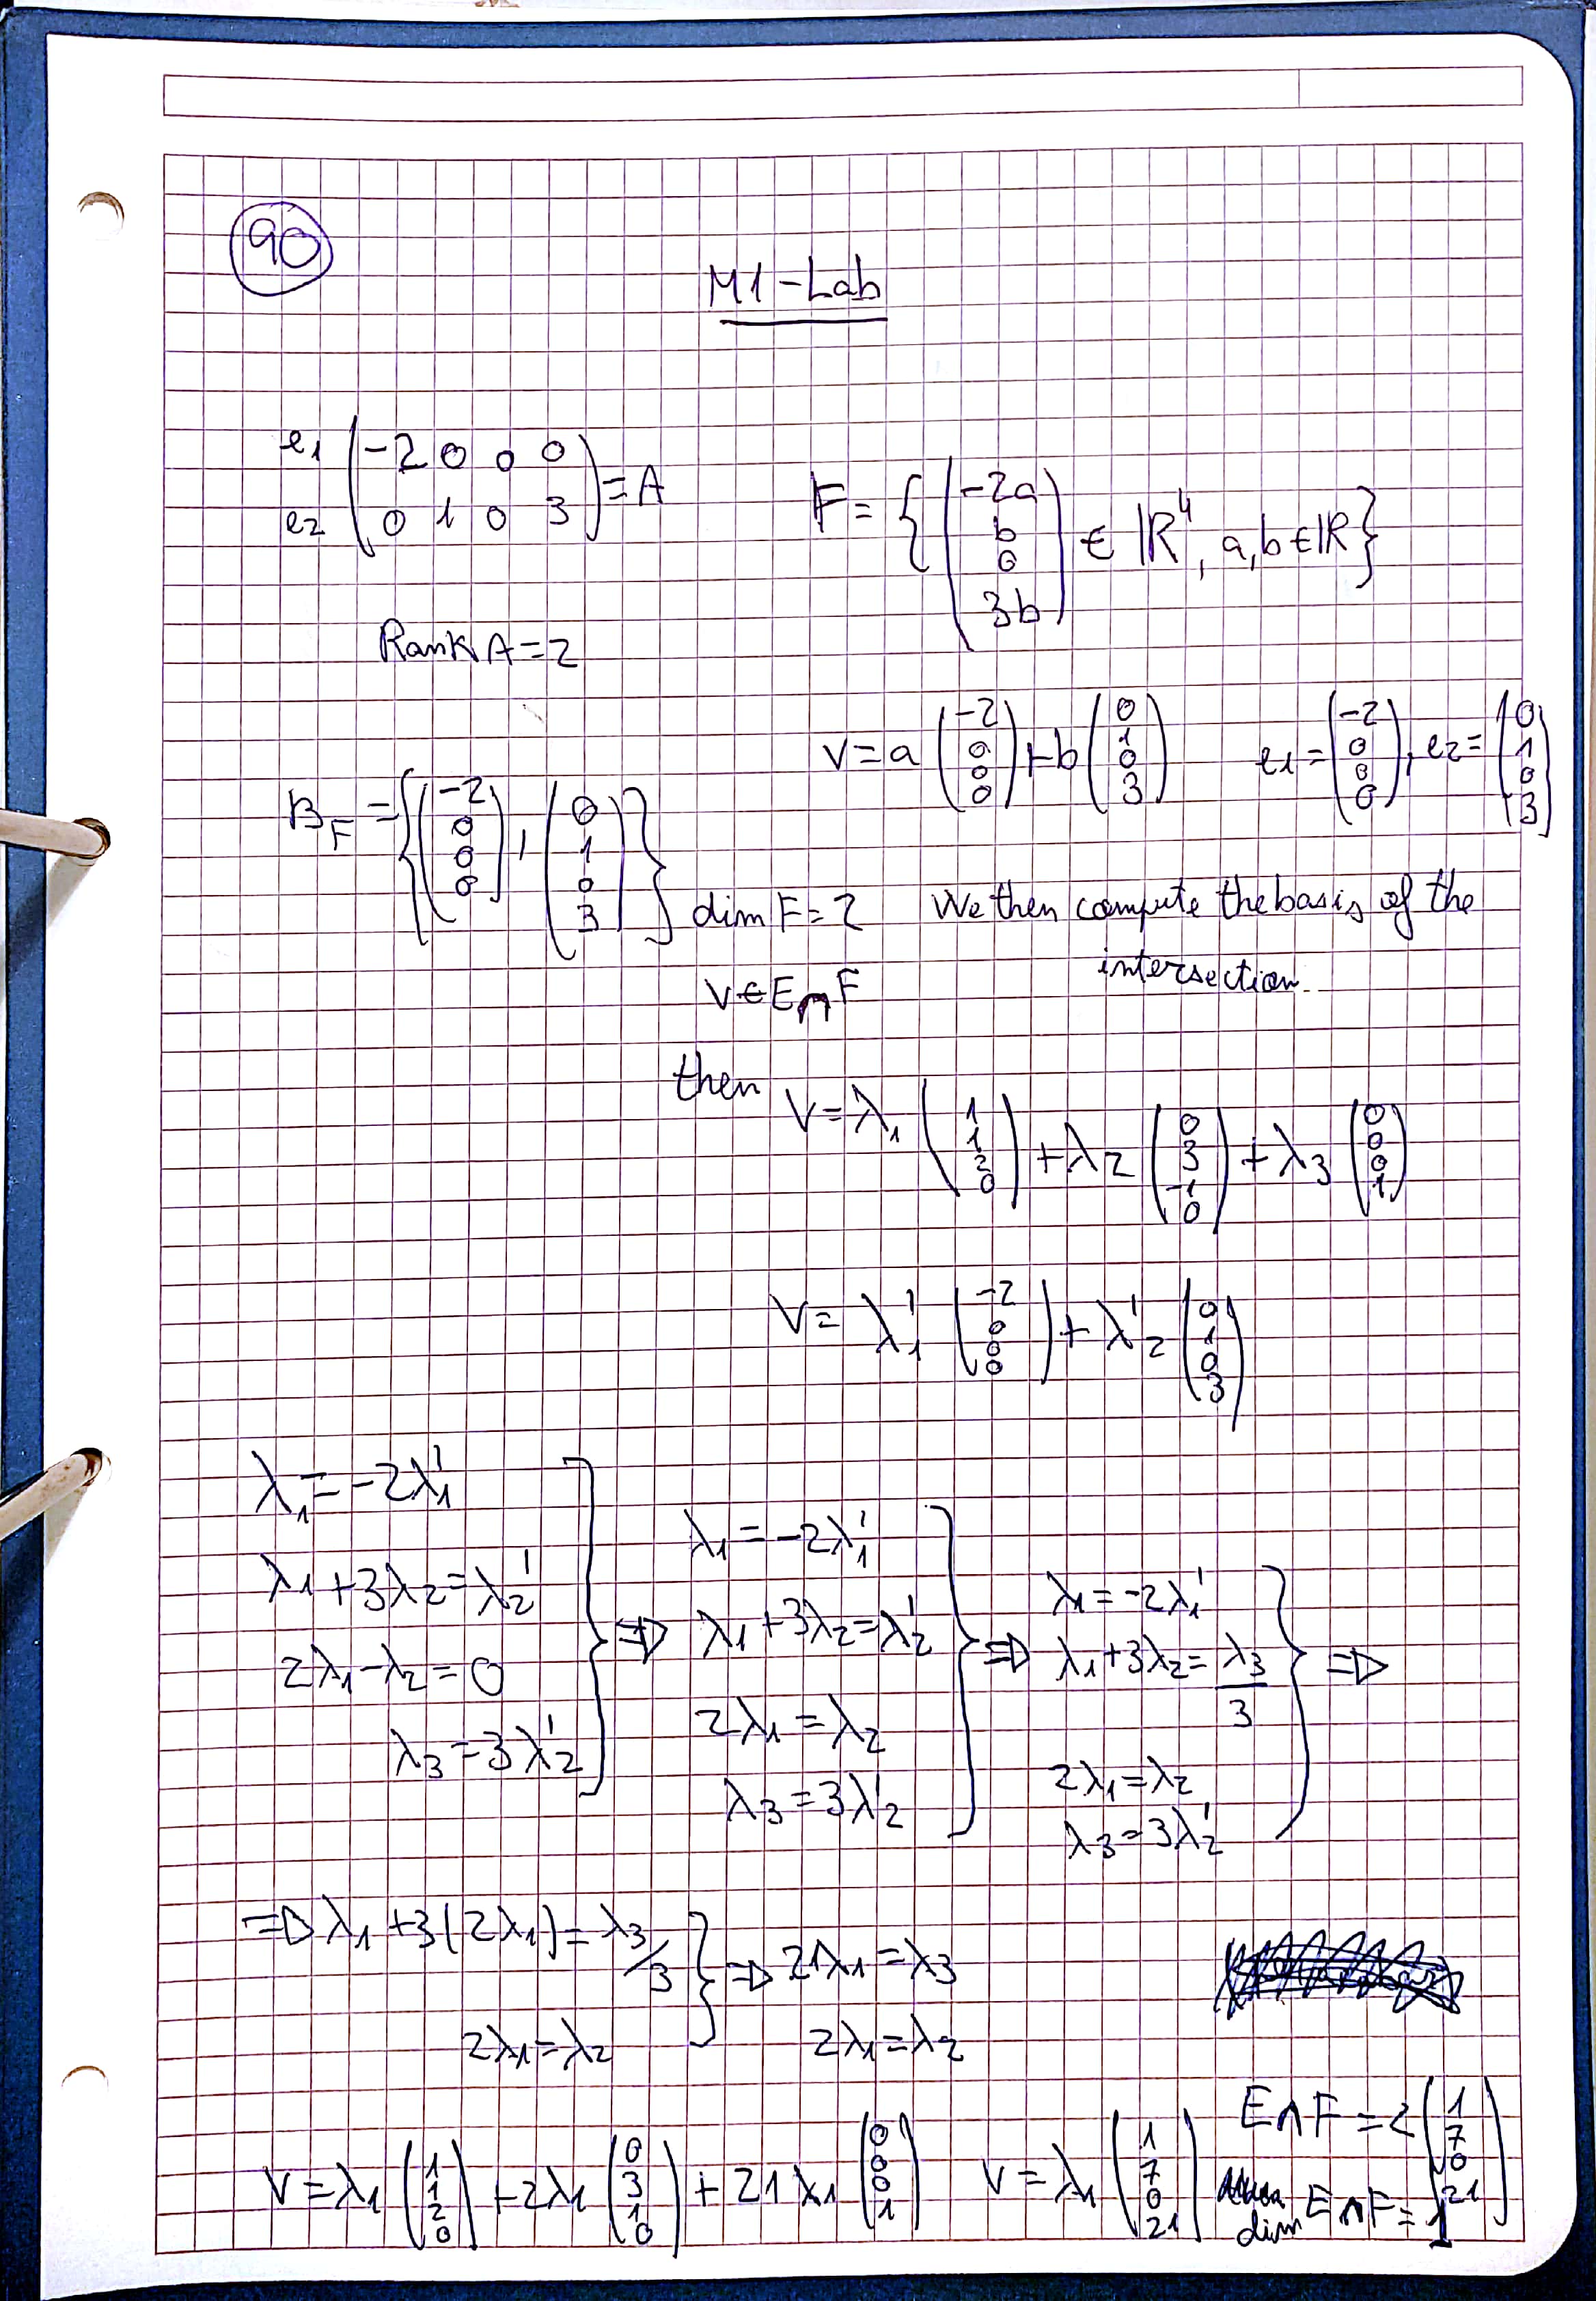 90
M1-Lab
e1 (-2 0 0 0)
e2 (0 1 0 3) = A
F = { (-2a, b, 0, 3b) ∈ ℝ⁴, a,b ∈ ℝ }
Rank A = 2
v = a (-2, 0, 0, 0) + b (0, 1, 0, 3)   e1 = (-2, 0, 0, 0), e2 = (0, 1, 0, 3)
B_F = { (-2, 0, 0, 0), (0, 1, 0, 3) } dim F = 2   We then compute the basis of the
intersection.
V ∈ E ∩ F
then V = λ1 (1, 1, 2, 0) + λ2 (0, 3, -1, 0) + λ3 (0, 0, 0, 1)
V = λ1' (-2, 0, 0, 0) + λ2' (0, 1, 0, 3)
λ1 = -2λ1'
λ1 + 3λ2 = λ2'
2λ1 - λ2 = 0
λ3 = 3λ2' } ⇒
λ1 = -2λ1'
λ1 + 3λ2 = λ2'
2λ1 = λ2
λ3 = 3λ2' } ⇒
λ1 = -2λ1'
λ1 + 3λ2 = λ3/3
2λ1 = λ2
λ3 = 3λ2' } ⇒
⇒ λ1 + 3(2λ1) = λ3/3
2λ1 = λ2 } ⇒ 21λ1 = λ3
2λ1 = λ2
V = λ1 (1, 1, 2, 0) + 2λ1 (0, 3, 1, 0) + 21λ1 (0, 0, 0, 1)   V = λ1 (1, 7, 0, 21)
E ∩ F = 2 (1, 7, 0, 21)
dim E ∩ F = 1